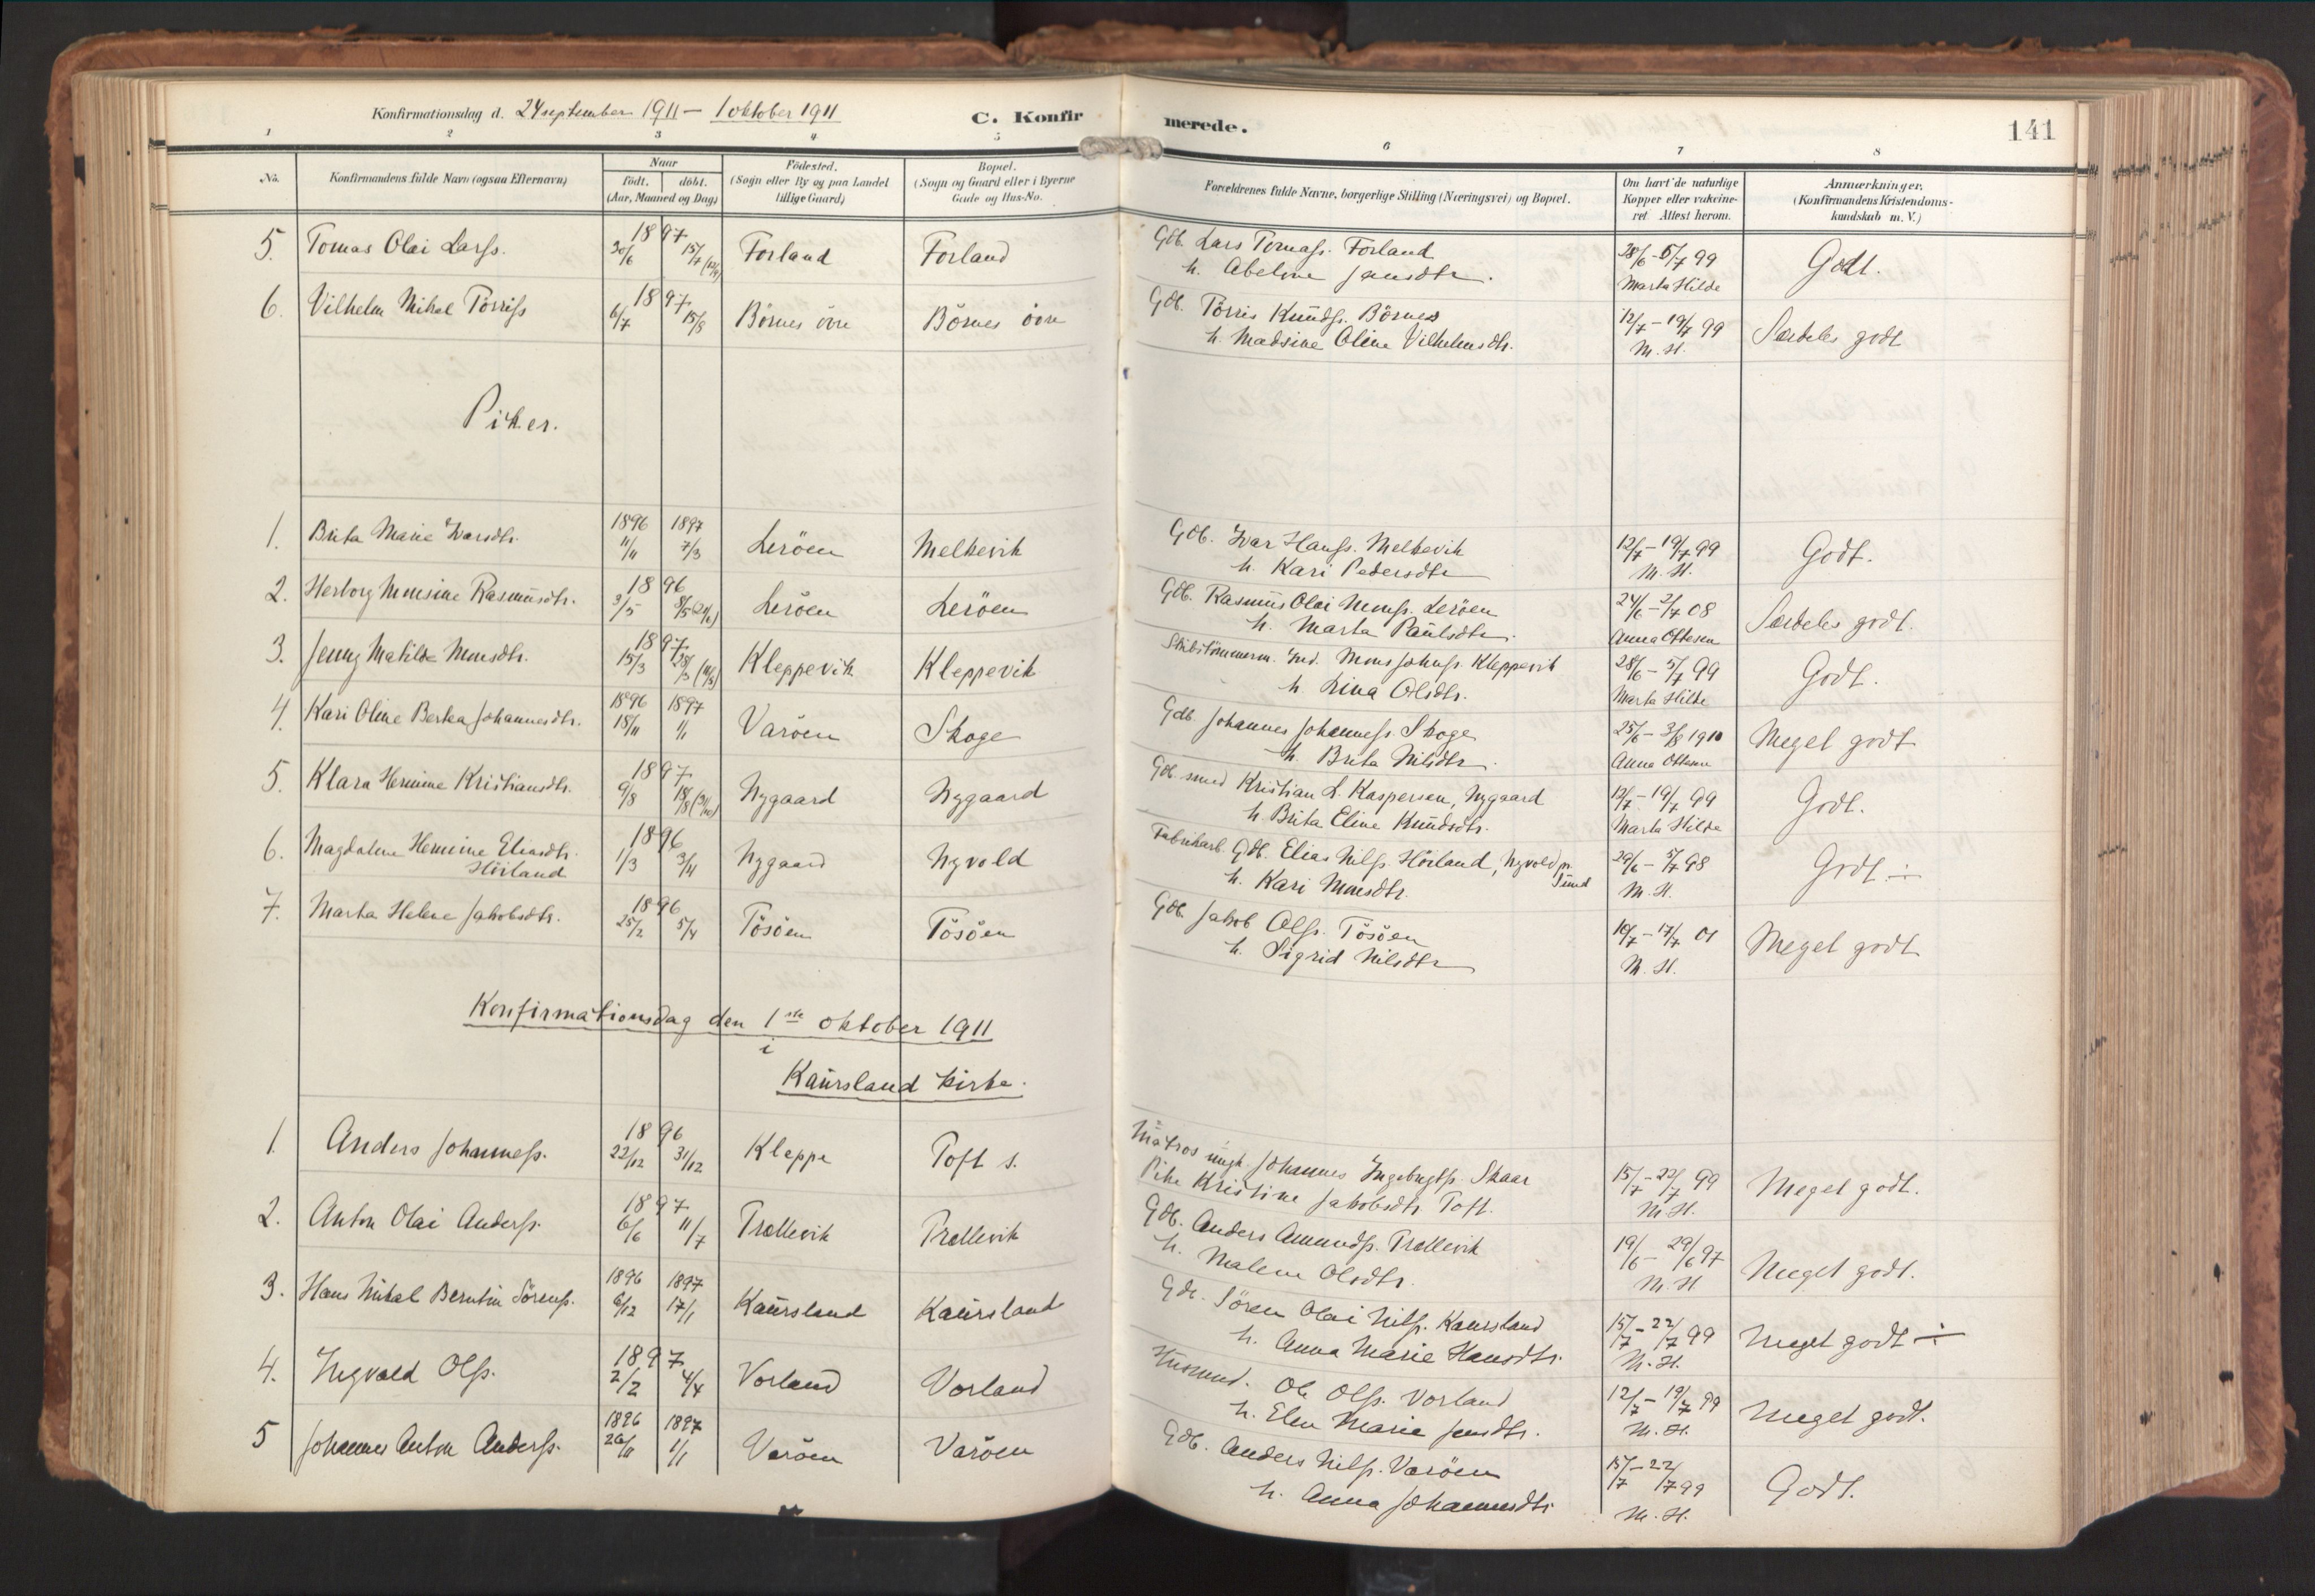 Konfirmationsdag d. 24 september 1911 — 1 oktober 1911 C. Konfirmerede. 141
1 2 3 4 5 6 7 8
No. Konfirmandens fulde Navn (ogsaa Efternavn) Naar født. døbt. (Aar, Maaned og Dag) Fødested. (Sogn eller By og paa Landet tillige Gaard) Bopæl. (Sogn og Gaard eller i Byerne Gade og Hus-No. Forældrenes fulde Navne, borgerlige Stilling (Næringsvei) og Bopæl. Om havt de naturlige Kopper eller vakcineret Attest herom. Anmærkninger. (Konfirmandens Kristendomskundskab m. V.)
5. Tomas Olai Larss. 1897 20/6 15/7 Forland Forland Gdb. Lars Tomass. Forland 28/6 - 5/7 99 Godt.
h. Abeline Jensdtr. Marta Hilde
6. Vilhelm Mikal Törriss 1897 6/7 15/8 Börnes övre Börnes övre Gdb. Törris Knudss. Börnes 12/7 - 19/7 99 Særdeles godt
h. Madsine Oline Vilhelmsdtr. M. H.
Piker.
1. Brita Marie Ivarsdtr. 1896 11/11 1897 7/3 Leröen Melkevik Gdb. Ivar Hanss. Melkevik 12/7 - 19/7 99 Godt.
h. Kari Pedersdtr M. H.
2. Herborg Monsine Rasmusdtr. 1896 3/5 Leröen Leröen Gdb. Rasmus Olai Monss. Leröen 24/6 - 2/7 08 Særdeles godt.
h. Marta Paulsdtr. Anna Ottesen
3. Jenny Matilde Monsdtr. 1897 15/3 Kleppevik Kleppevik Skibstömmerm. Ind. Mons Johnss. Kleppevik 28/6 - 5/7 99 Godt.
h. Lina Olsdtr. Marta Hilde
4. Kari Oline Berta Johannesdtr. 1896 18/11 1897 1/1 Varöen Skoge Gdb. Johannes Johanness. Skoge 25/6 - 3/8 1910 Meget godt
h. Brita Nilsdtr. Anna Ottesen
5. Klara Hermine Kristiansdtr. 1897 9/8 18/8 (31/10) Nygaard Nygaard Gdb. smed Kristian L. Kaspersen, Nygaard 12/7 - 19/7 99 Godt.
h. Brita Eline Knudsdtr. Marta Hilde
6. Magdalene Hermine Eliasdtr. Höiland 1896 1/3 3/11 Nygaard Nyvold Fabrikarb. Gdb. Elias Nilss. Höiland, Nyvold pr. Sund 29/6 - 5/7 98 Godt ÷
h. Kari Monsdtr. M. H.
7. Marta Helene Jakobsdtr. 1896 25/2 5/4 Tösöen Tösöen Gdb. Jakob Olss. Tösöen 10/7 - 17/7 01 Meget godt
h. Sigrid Nilsdtr M. H.
Konfirmationsdag den 1ste oktober 1911
i
Kaursland kirke.
1. Anders Johanness. 1896 22/12 31/12 Kleppe Toft s. Matros ungk. Johannes Ingebrigtss. Skaar 15/7 - 22/7 99 Meget godt.
Pike Kristine Jakobsdtr Toft. M. H.
2. Anton Olai Anderss. 1897 6/6 11/7 Trællevik Trællevik Gdb. Anders Amundss. Trællevik 19/6 - 29/6 97 Meget godt.
h. Malene Olsdtr. M. H.
3. Hans Mikal Berntin Sörenss. 1896 6/12 1897 17/1 Kaursland Kaursland Gdr. Sören Olai Nilss. Kaursland 15/7 - 22/7 99 Meget godt ÷
h. Anna Marie Hansdtr. M. H.
4. Ingvald Olss. 1897 2/2 4/4 Vorland Vorland Husmand. Ole Olss. Vorland 12/7 - 19/7 99 Meget godt.
h. Elen Marie Jensdtr. M. H.
5 Johannes Anton Anderss. 1896 26/11 1897 1/1 Varöen Varöen Gdb. Anders Nilss. Varöen 15/7 - 22/7 99 Godt.
h. Anna Johannesdtr M. H.